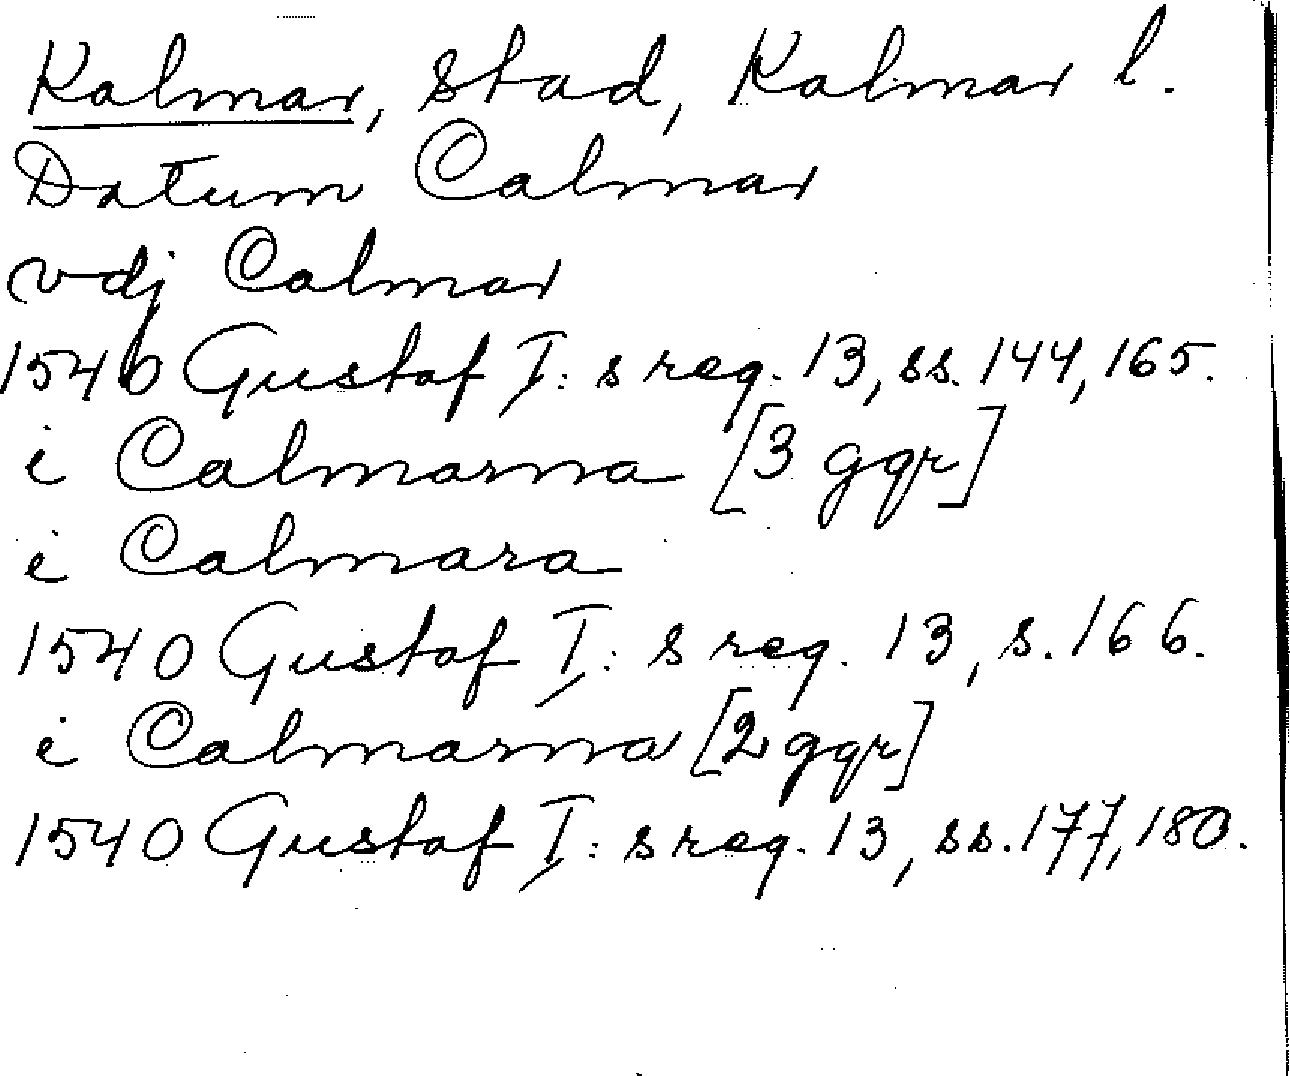 Kalmar, stad, Kalmar l.
Datum Calmar
vdj Calmar
1540 Gustof I: s reg. 13, ss. 144, 165.
i Calmarna [3 ggr]
i Calmara
1540 Gustof I: s reg. 13, s. 166.
i Calmarna [2 ggr]
1540 Gustof I: s reg. 13, ss. 177, 180.